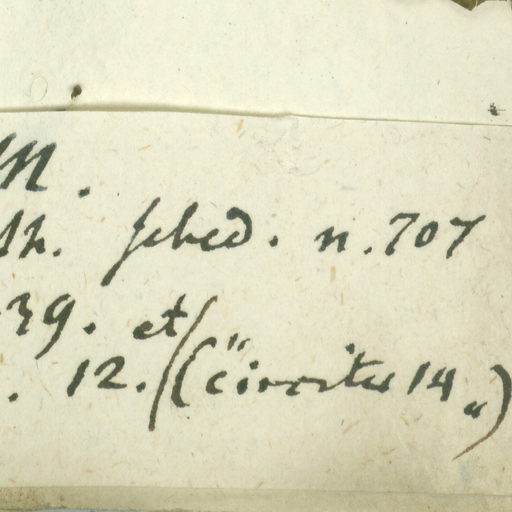 M.
sched. n. 707
39. et
. 12. ("circiter 14")